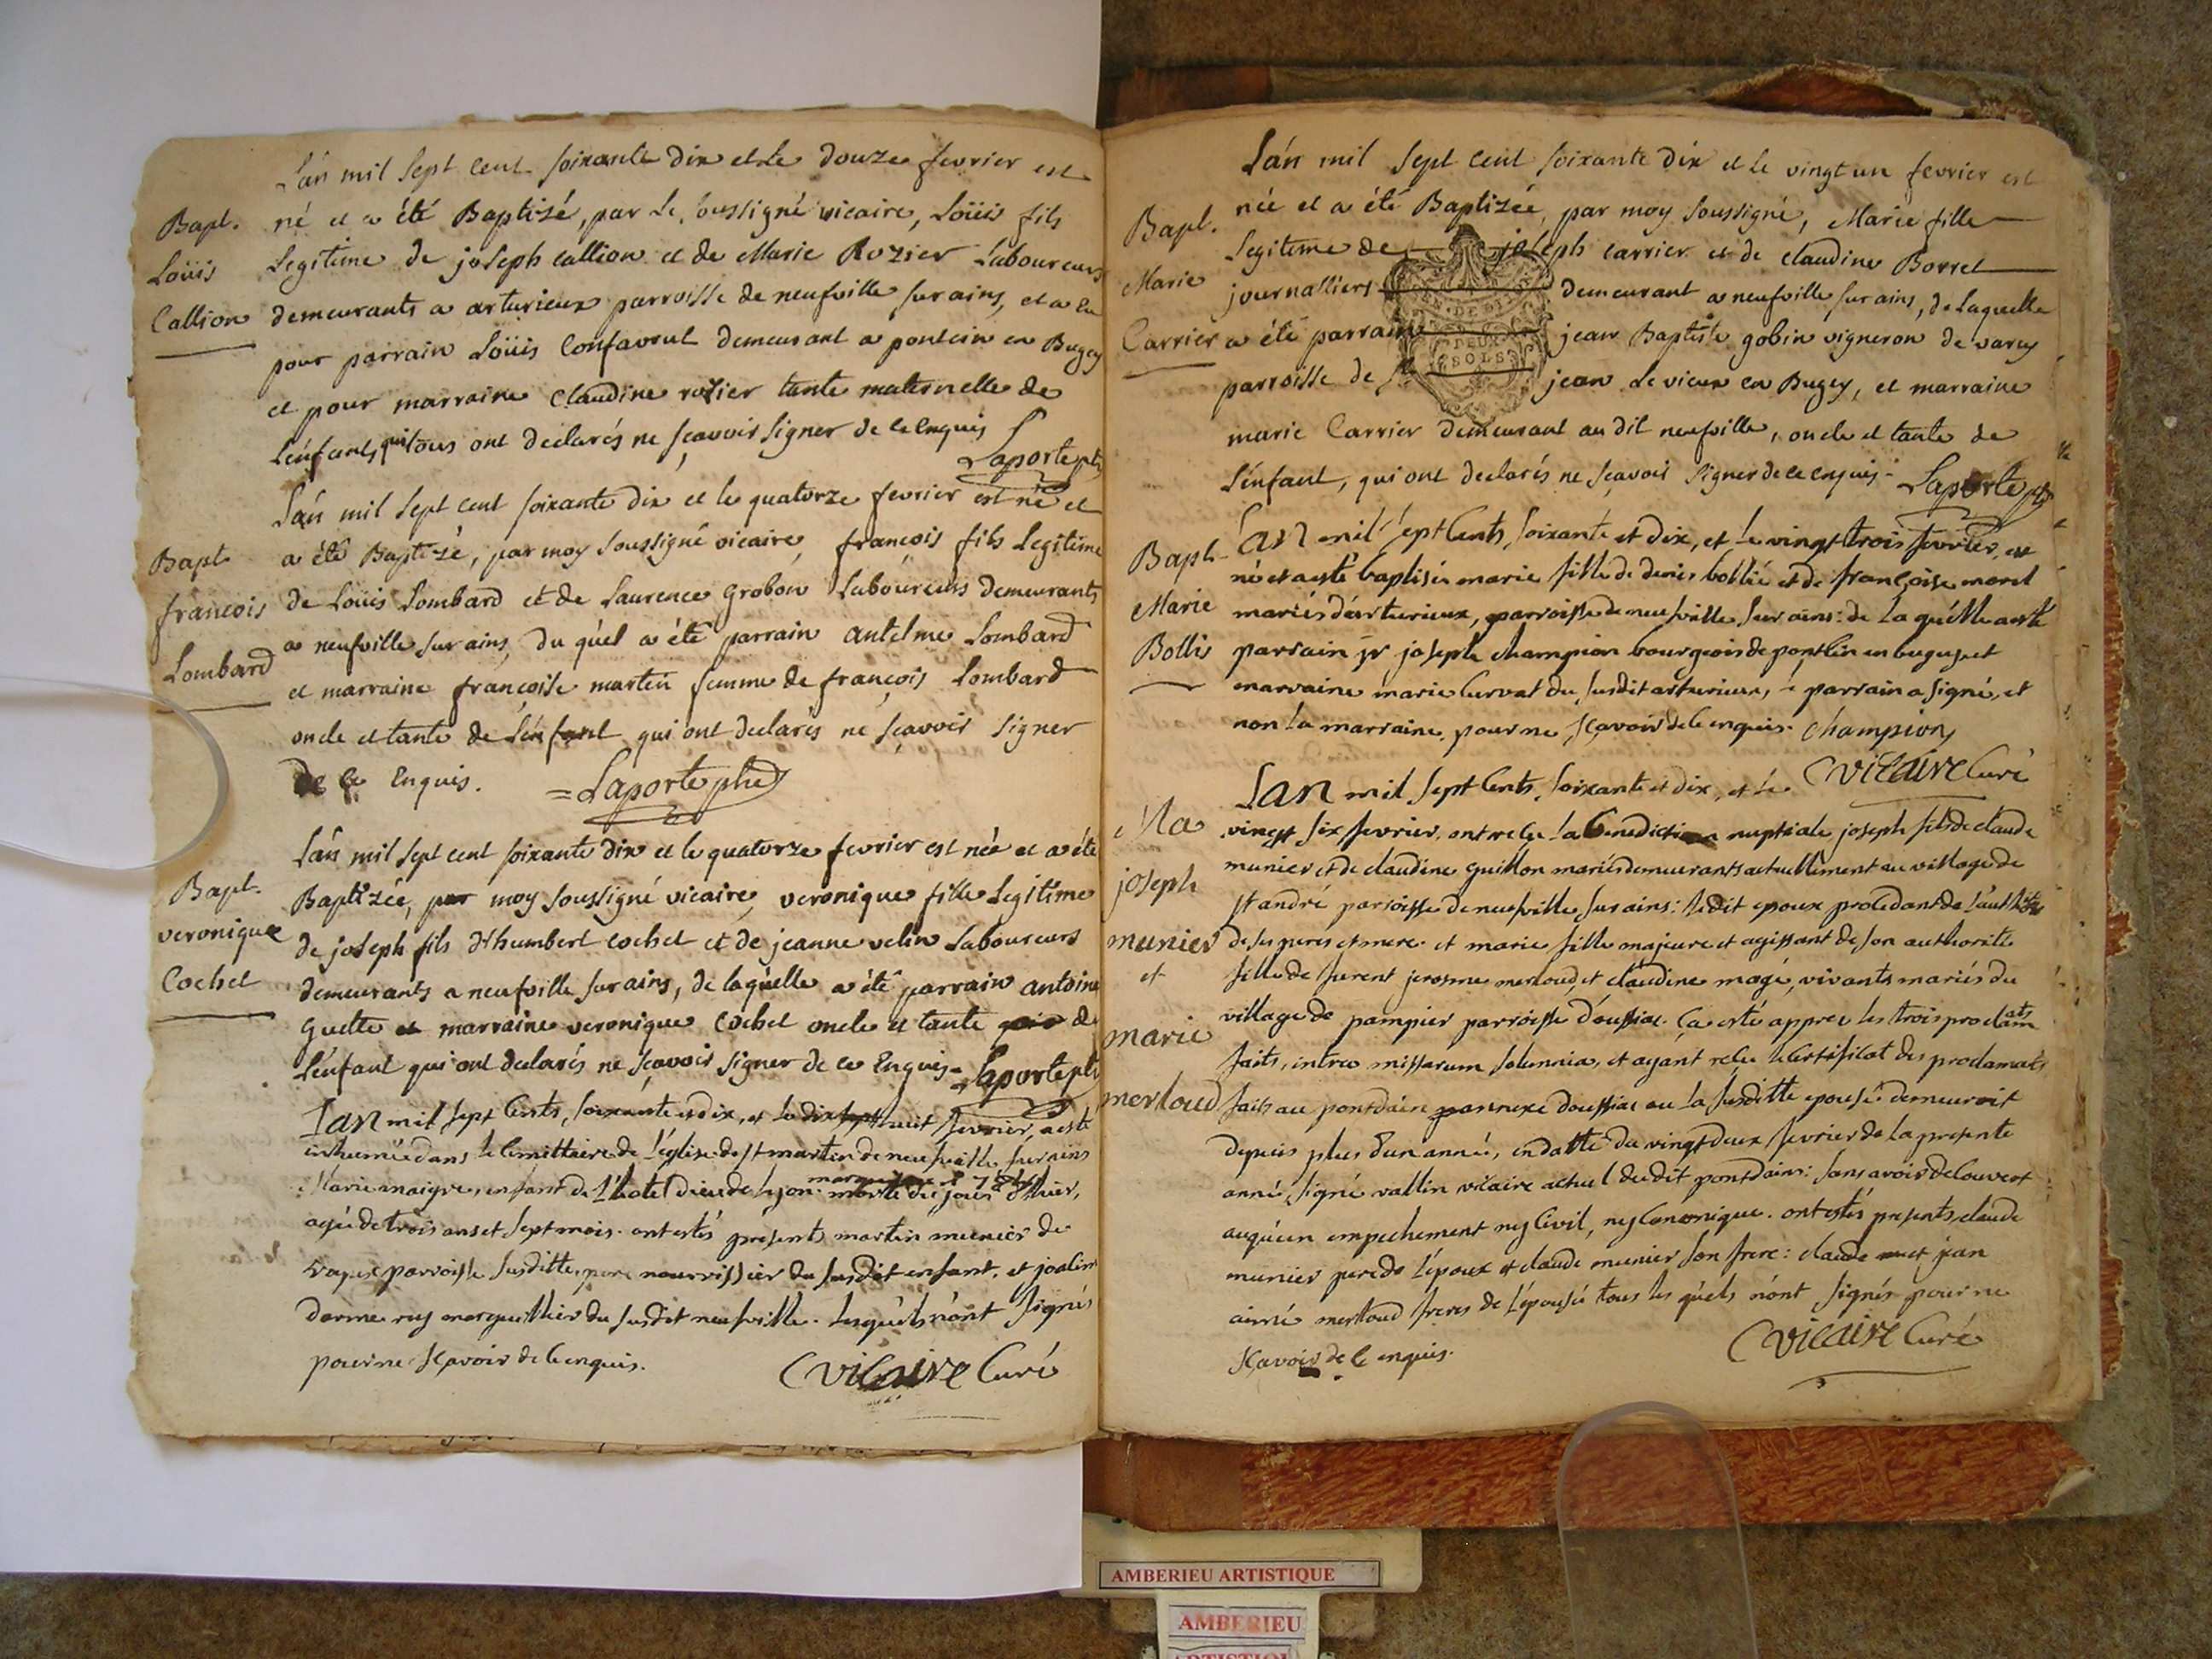 L'an mil sept cent soixante dix et le douze fevrier est
Bapt. né et a été Baptisé, par le soussigné vicaire, Loüis fils
Loüis Legitime de joseph Callion et de Marie Rozier Laboureurs
Callion demeurants a arturieux parroisse de neufville sur ains, et a eu
pour parrain Loüis Confavrut demeurant a pontcin en Bugey
et pour marraine Claudine rozier tante maternelle de
L'enfant, qui tous ont declarés ne sçavoir signer de ce Enquis
Laporte ptre
L'an mil sept cent soixante dix et le quatorze fevrier est né et
Bapt. a été Baptizé, par moy soussigné vicaire, françois fils Legitime
francois de Loüis Lombard et de Laurence Grobon Laboureurs demeurants
Lombard a neufville sur ains, du quel a été parrain antelme Lombard
et marraine françoise martin femme de françois Lombard
oncle et tante de L'enfant qui ont declarés ne sçavoir signer
de ce Enquis. Laporte ptre
L'an mil sept cent soixante dix et le quatorze fevrier est née et a été
Bapt. Baptizée, par moy soussigné vicaire, veronique fille Legitime
veronique de joseph fils d'humbert cochet et de jeanne velin Laboureurs
Cochet demeurants a neufville sur ains, de laquelle a été parrain antoine
Guette et marraine veronique Cochet oncle et tante de
L'enfant qui ont declarés ne sçavoir signer de ce Enquis Laporte ptre
Lan mil sept Cents, soixante et dix, et le dix huit fevrier, a esté
inhumée dans le Cimittaire de l'église de st martin de neufville sur ains
Marie maigre, enfant de l'hotel dieu de Lyon morte du jour d'hier,
agée de trois ans et sept mois. ont estés presents martin munier de
parroisse susditte, pere nourrissier du susdit enfant, et
marguillier du susdit neufville. Lesquels n'ont signés
pour ne sçavoir de ce enquis. Vicaire Curé
L'an mil sept cent soixante dix et le vingt un fevrier est
Bapt. née et a été Baptizée, par moy soussigné, Marie fille
Marie Legitime de joseph carrier et de claudine Borret
journalliers demeurant a neufville sur ains, de Laquelle
Carrier a été parrain jean Baptiste gobin vigneron de varey
DEUX SOLS
parroisse de st jean Le vieux en Bugey, et marraine
marie Carrier demeurant au dit neufville, oncle et tante de
L'enfant, qui ont declarés ne sçavoir signer de ce enquis. Laporte ptre
Bapt. Lan mil sept Cents, soixante et dix, et le vingt trois fevrier, est
né et a esté baptisée marie fille de denis bollié et de françoise morel
Marie mariés d'arturieux, parroisse de neufville sur ains: de la quelle a esté
Bollis parrain sr joseph champion bourgeois de pontcin en bugey, et
marraine marie Curvat du susdit arturieux, le parrain a signé, et
non la marraine, pour ne sçavoir de ce enquis. Champion
Vicaire Curé
Lan mil sept Cents, soixante et dix, et le
Ma vingt six fevrier, ont reçu la Benediction nuptiale joseph fils de claude
munier et de claudine guillon mariés demeurants actuellement au village de
joseph st andré parroisse de neufville sur ains: ledit epoux procedant de l'authorité
munier de ses pere et mere. et marie fille majeure et agissant de son authorité
et fille de furent jerosme merloud, et claudine magé, vivants mariés du
village de pampier parroisse d'oussiat. Ça esté apprez les trois proclamats
marie faits, intra missarum solemnia, et ayant reçu le Certificat des proclamats
merloud faits au pontdain annexe doussiat ou la susditte epouse demeuroit
depuis plus d'un année, en datte du vingt deux fevrier de la presente
année, signé vallin vicaire actuel dudit pontdains: sans avoir decouvert
auquun empechement ny Civil, ny Canonique. ont estés presents, claude
munier pere de l'époux et claude munier son frere: claude et jean
aimé merloud freres de l'épouse tous les quels n'ont signés pour ne
sçavoir de ce enquis. Vicaire Curé
AMBERIEU ARTISTIQUE
AMBERIEU
ARTISTIQUE